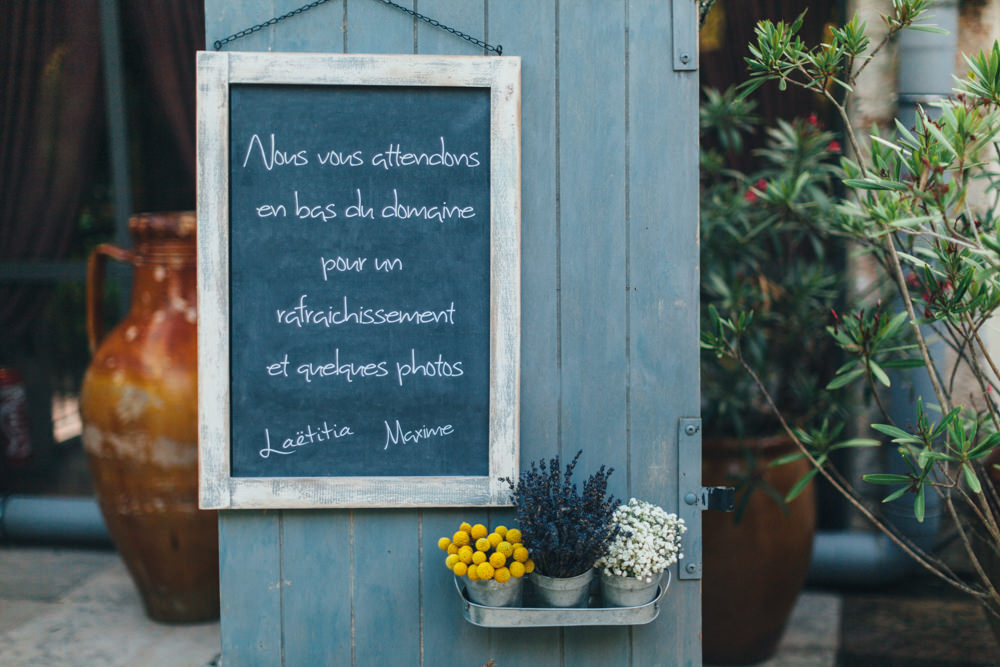 Nous vous attendons
en bas du domaine
pour un
rafraichissement
et quelques photos
Laëtitia Maxime